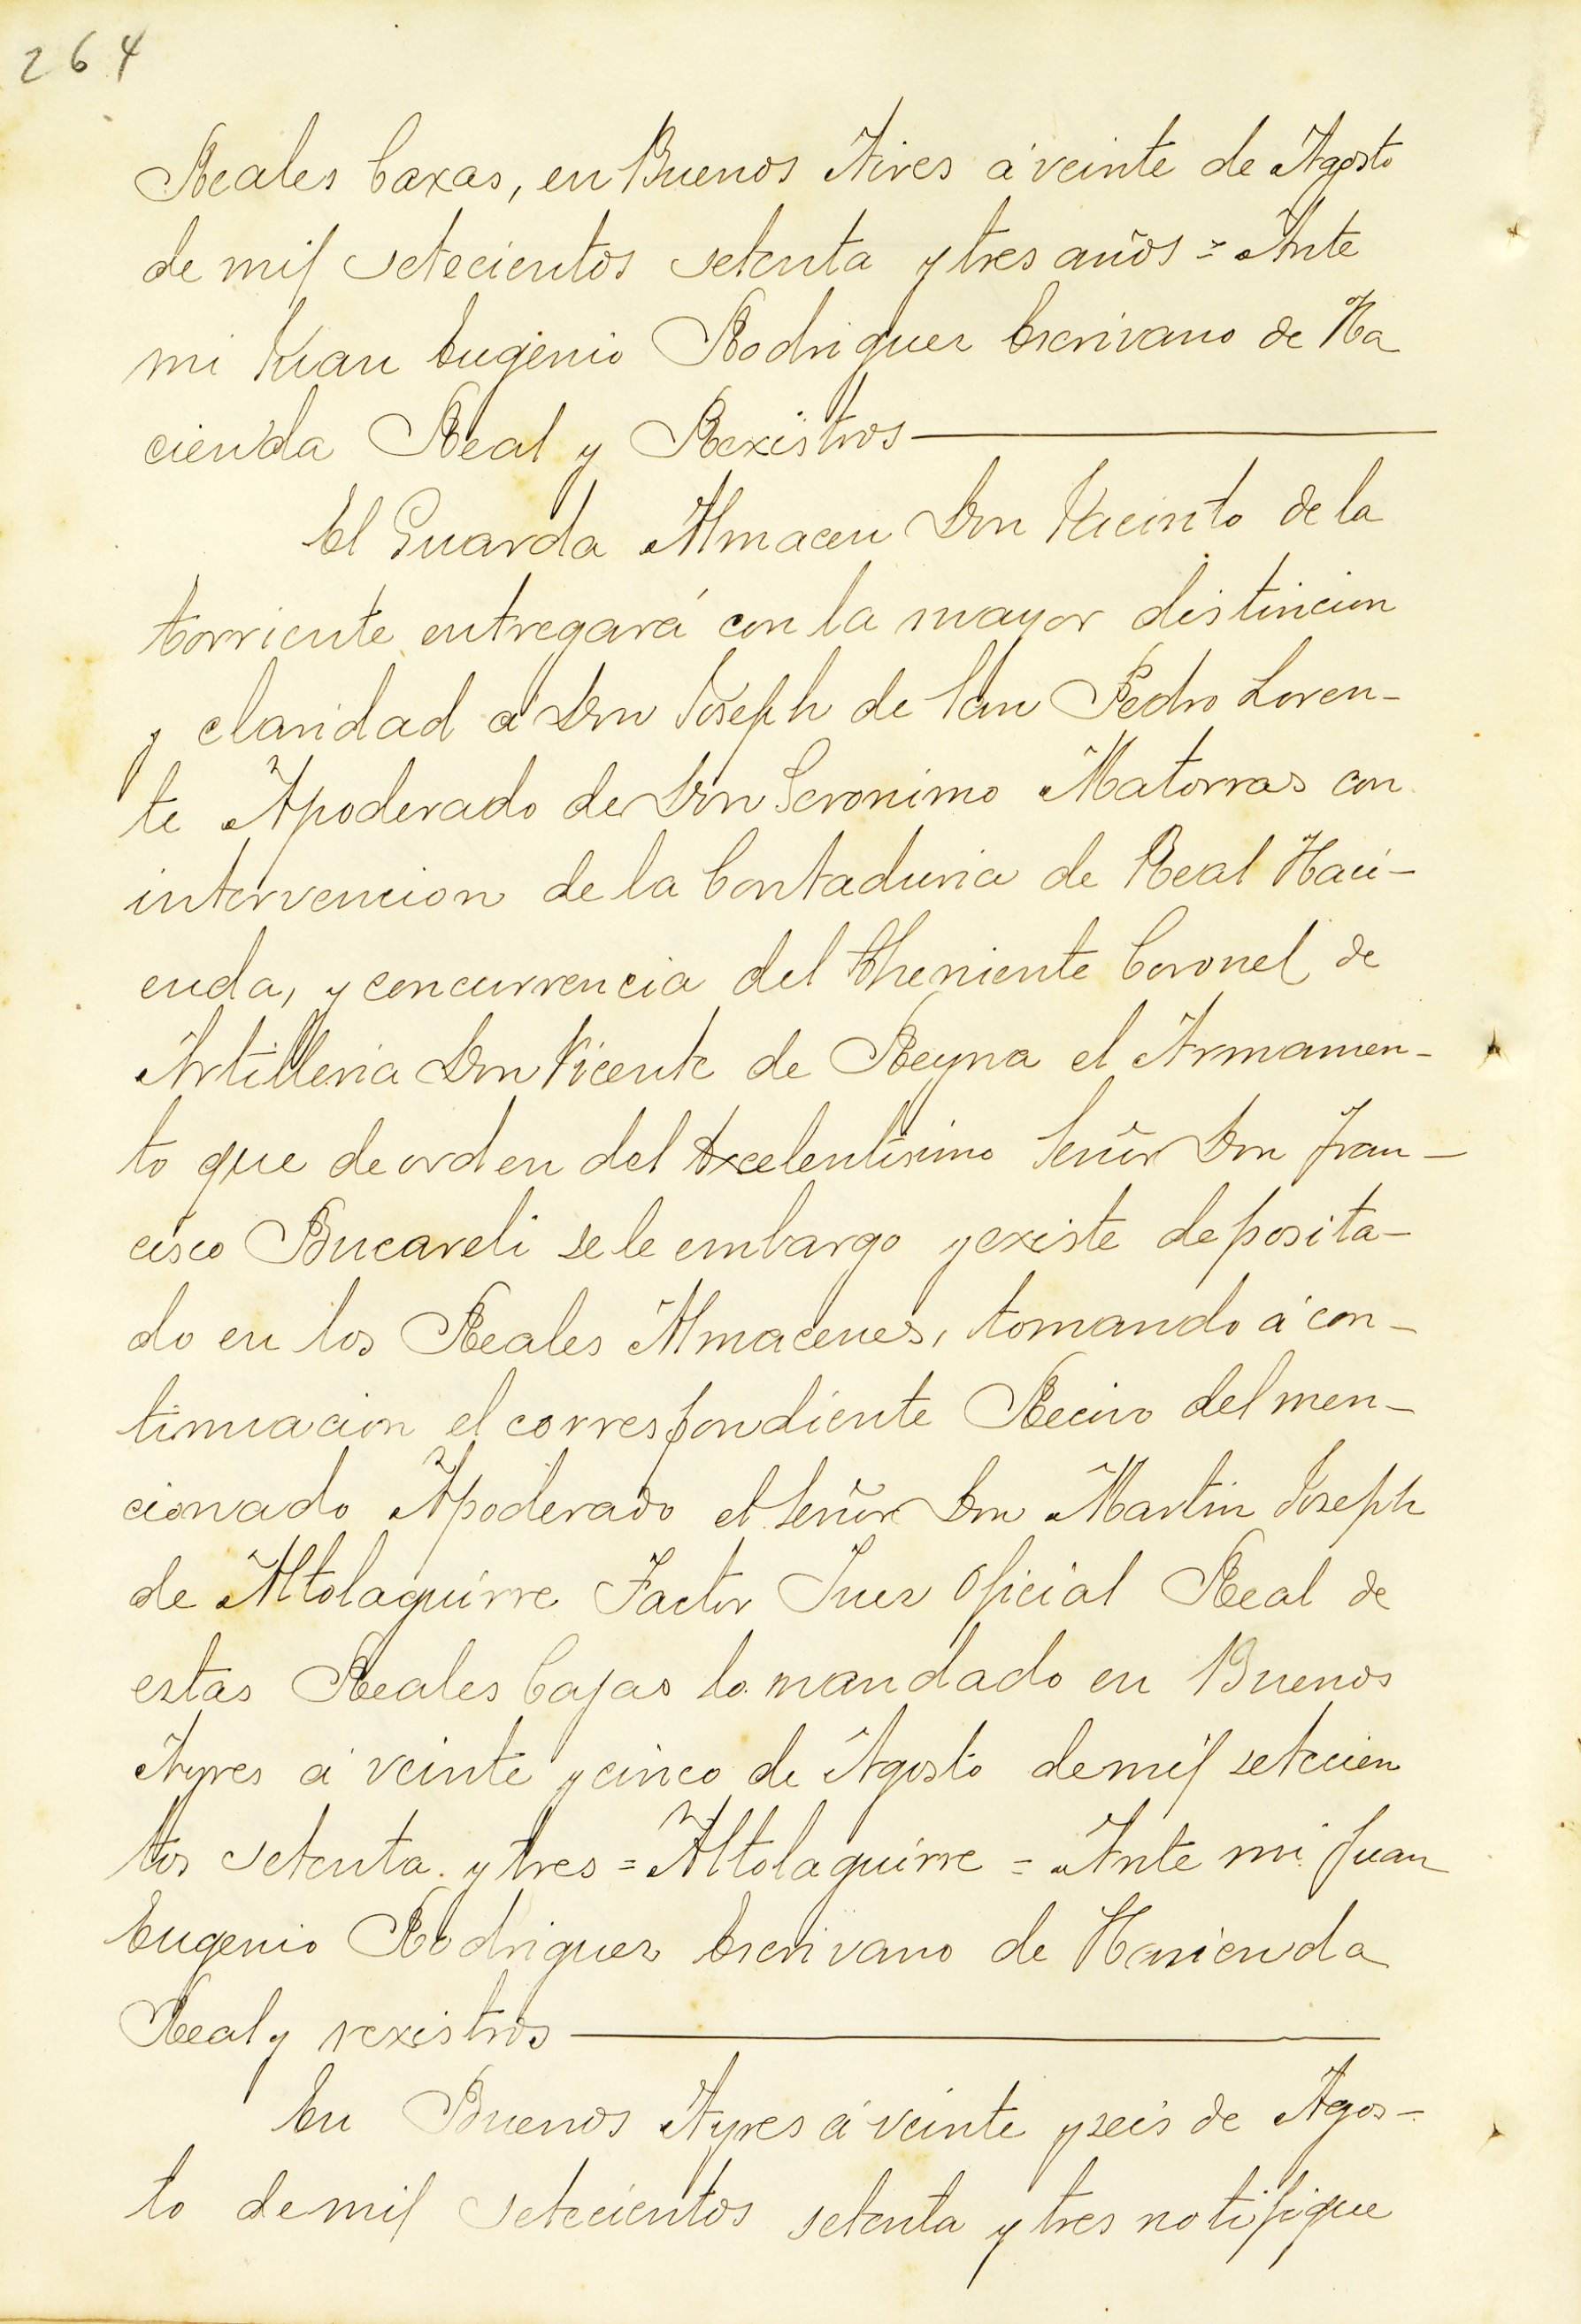 264
Reales Caxas, en Buenos Aires á veinte de Agosto
de mil setecientos setenta y tres años = Ante
mi Juan Eugenio Rodriguez Escrivano de Ha
cienda Real y Rexistros
El Guarda Almacen Don Jacinto de la
torriente entregará con la mayor distincion
y claridad á Don Joseph de San Pedro Loren-
te Apoderado de Don Geronimo Matorras con
intervencion de la Contaduria de Real Haci-
enda, y concurrencia del Theniente Coronel de
Artilleria Don Vicente de Reyna el Armamen-
to que de orden del Excelentisimo Señor Don Fran-
cisco Bucareli se le embargo y existe deposita-
do en los Reales Almacenes, tomando á con-
tinuacion el correspondiente Recivo del men-
cionado Apoderado el Señor Don Martin Joseph
de Altolaguirre Factor Juez Oficial Real de
estas Reales Cajas lo mandado en Buenos
Ayres á veinte y cinco de Agosto de mil setecien
tos setenta y tres = Altolaguirre = Ante mi Juan
Eugenio Rodriguez Escrivano de Hacienda
Real y rexistros
En Buenos Ayres á veinte y seis de Agos-
to de mil setecientos setenta y tres notifique